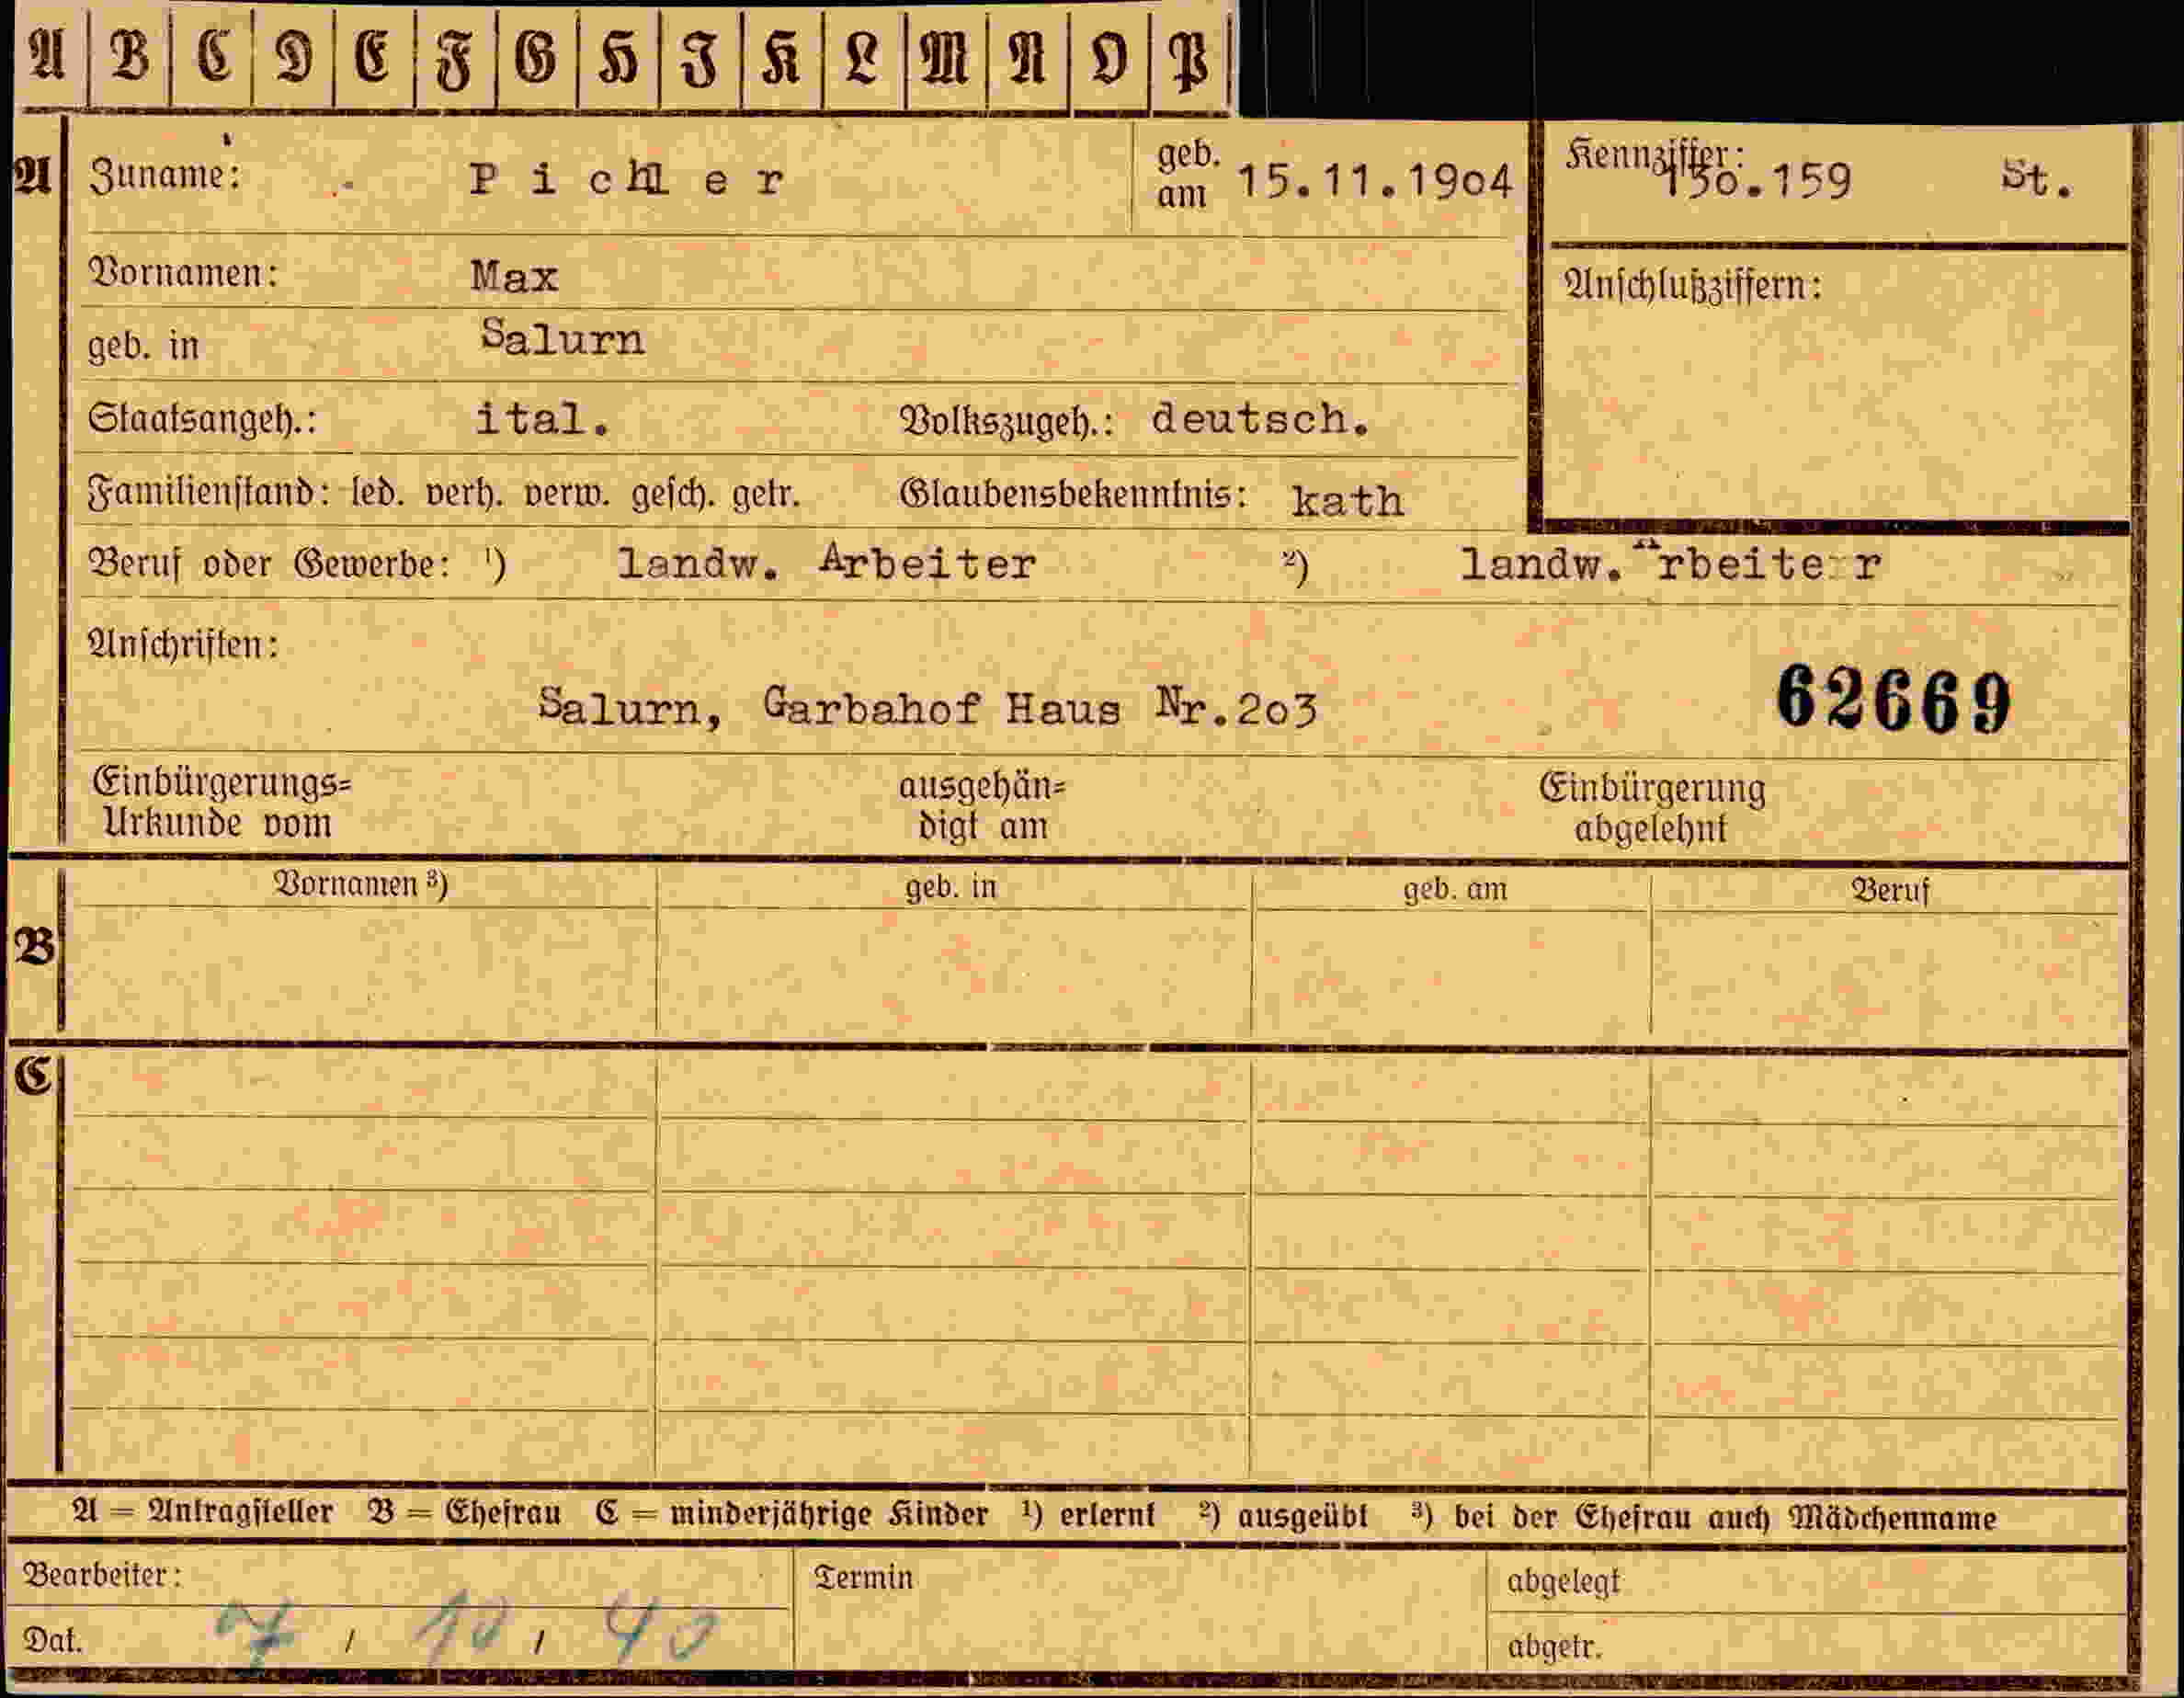 A B C D E F G H J K L M N O P
A Zuname: Pichler geb. am 15.11.1904 Kennziffer: 150.159 St.
Vornamen: Max Anschlußziffern:
geb. in Salurn
Staatsangeh.: ital. Volkszugeh.: deutsch.
Familienstand: led. verh. verw. gesch. getr. Glaubensbekenntnis: kath
Beruf oder Gewerbe: ¹) landw. Arbeiter ²) landw. Arbeiter
Anschriften:
Salurn, Garbahof Haus Nr.203 62669
Einbürgerungs= ausgehän= Einbürgerung
Urkunde vom digt am abgelehnt
B Vornamen ³) geb. in geb. am Beruf
C
A = Antragsteller B = Ehefrau C = minderjährige Kinder ¹) erlernt ²) ausgeübt ³) bei der Ehefrau auch Mädchenname
Bearbeiter: Termin abgelegt
Dat. 7 / 10 / 40 abgetr.